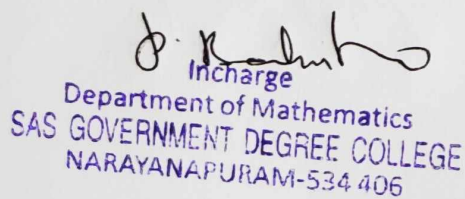 Incharge
Department of Mathematics
SAS GOVERNMENT DEGREE COLLEGE
NARAYANAPURAM-534 406